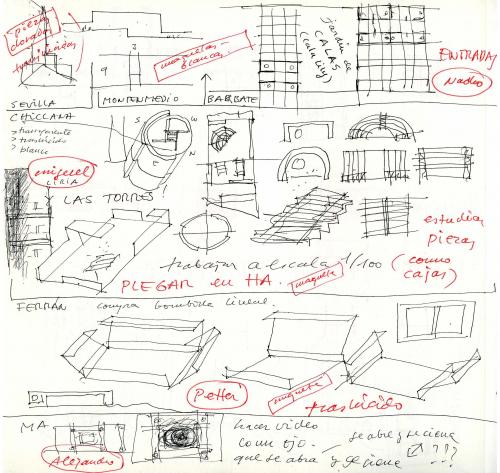 piezas
doradas
translúcidas
maquetas
blancas
jardín de
CALAS
(cala lily)
ENTRADAS
Nadia
SEVILLA
MONTENMEDIO
BARBATE
CHICLANA
> transparente
> traslúcido
> blanco
9
3
S
W
E
N
miguel
LIRIA
Y LAS TORRES
estudiar
piezas
(como
cajas)
trabajar a escala 1/100
PLEGAR en HA.
maqueta
FERRÁN compra bombilla lineal
Petti
maqueta
traslúcido
MA
Alejandro
hacer video
como ojo.
que se abra
y se cierre
se abre y se cierra
???